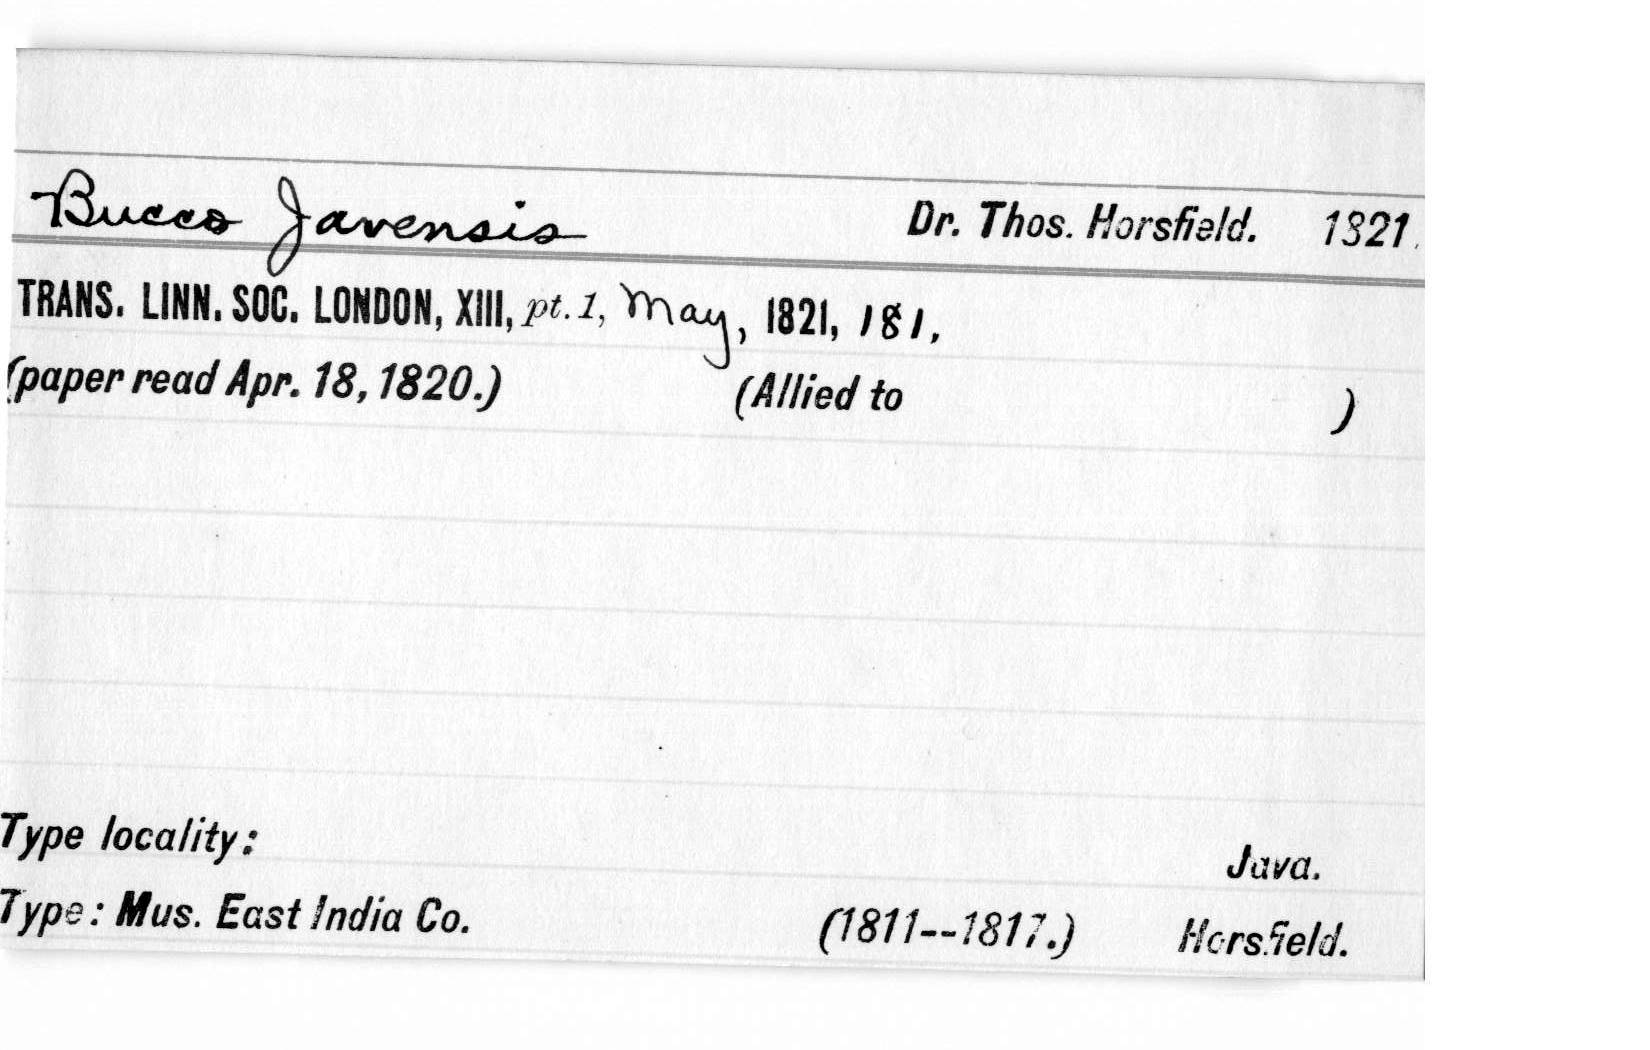 Bucco Javensis Dr. Thos. Horsfield. 1821.
TRANS. LINN. SOC. LONDON, XIII, pt. 1, May, 1821, 181.
(paper read Apr. 18, 1820.) (Allied to )
Type locality: Java.
Type: Mus. East India Co. (1811--1817.) Horsfield.